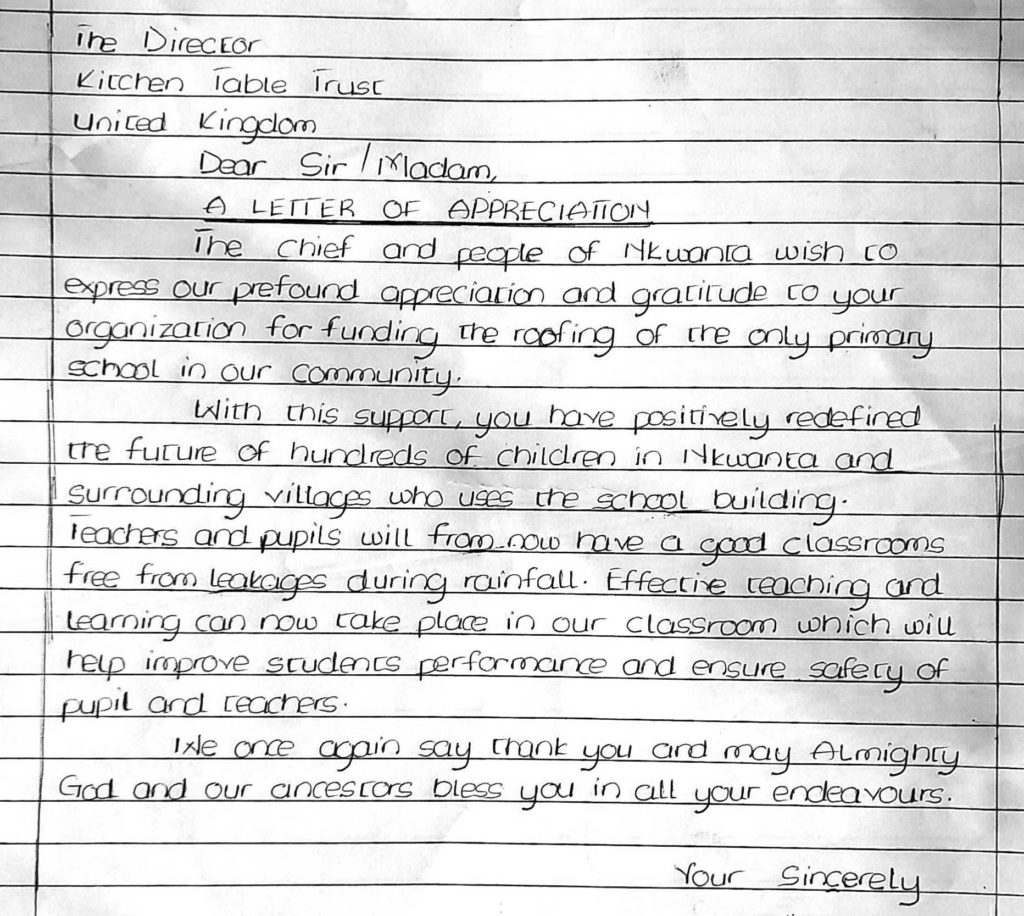 The Director
Kitchen Table Trust
United Kingdom
Dear Sir/Madam,
A LETTER OF APPRECIATION
The chief and people of Nkwanta wish to
express our prefound appreciation and gratitude to your
organization for funding the roofing of the only primary
school in our community.
With this support, you have positively redefined
the future of hundreds of children in Nkwanta and
surrounding villages who uses the school building.
Teachers and pupils will from now have a good classrooms
free from leakages during rainfall. Effective teaching and
learning can now take place in our classroom which will
help improve students performance and ensure safety of
pupil and teachers.
We once again say thank you and may Almighty
God and our ancestors bless you in all your endeavours.
Your Sincerely